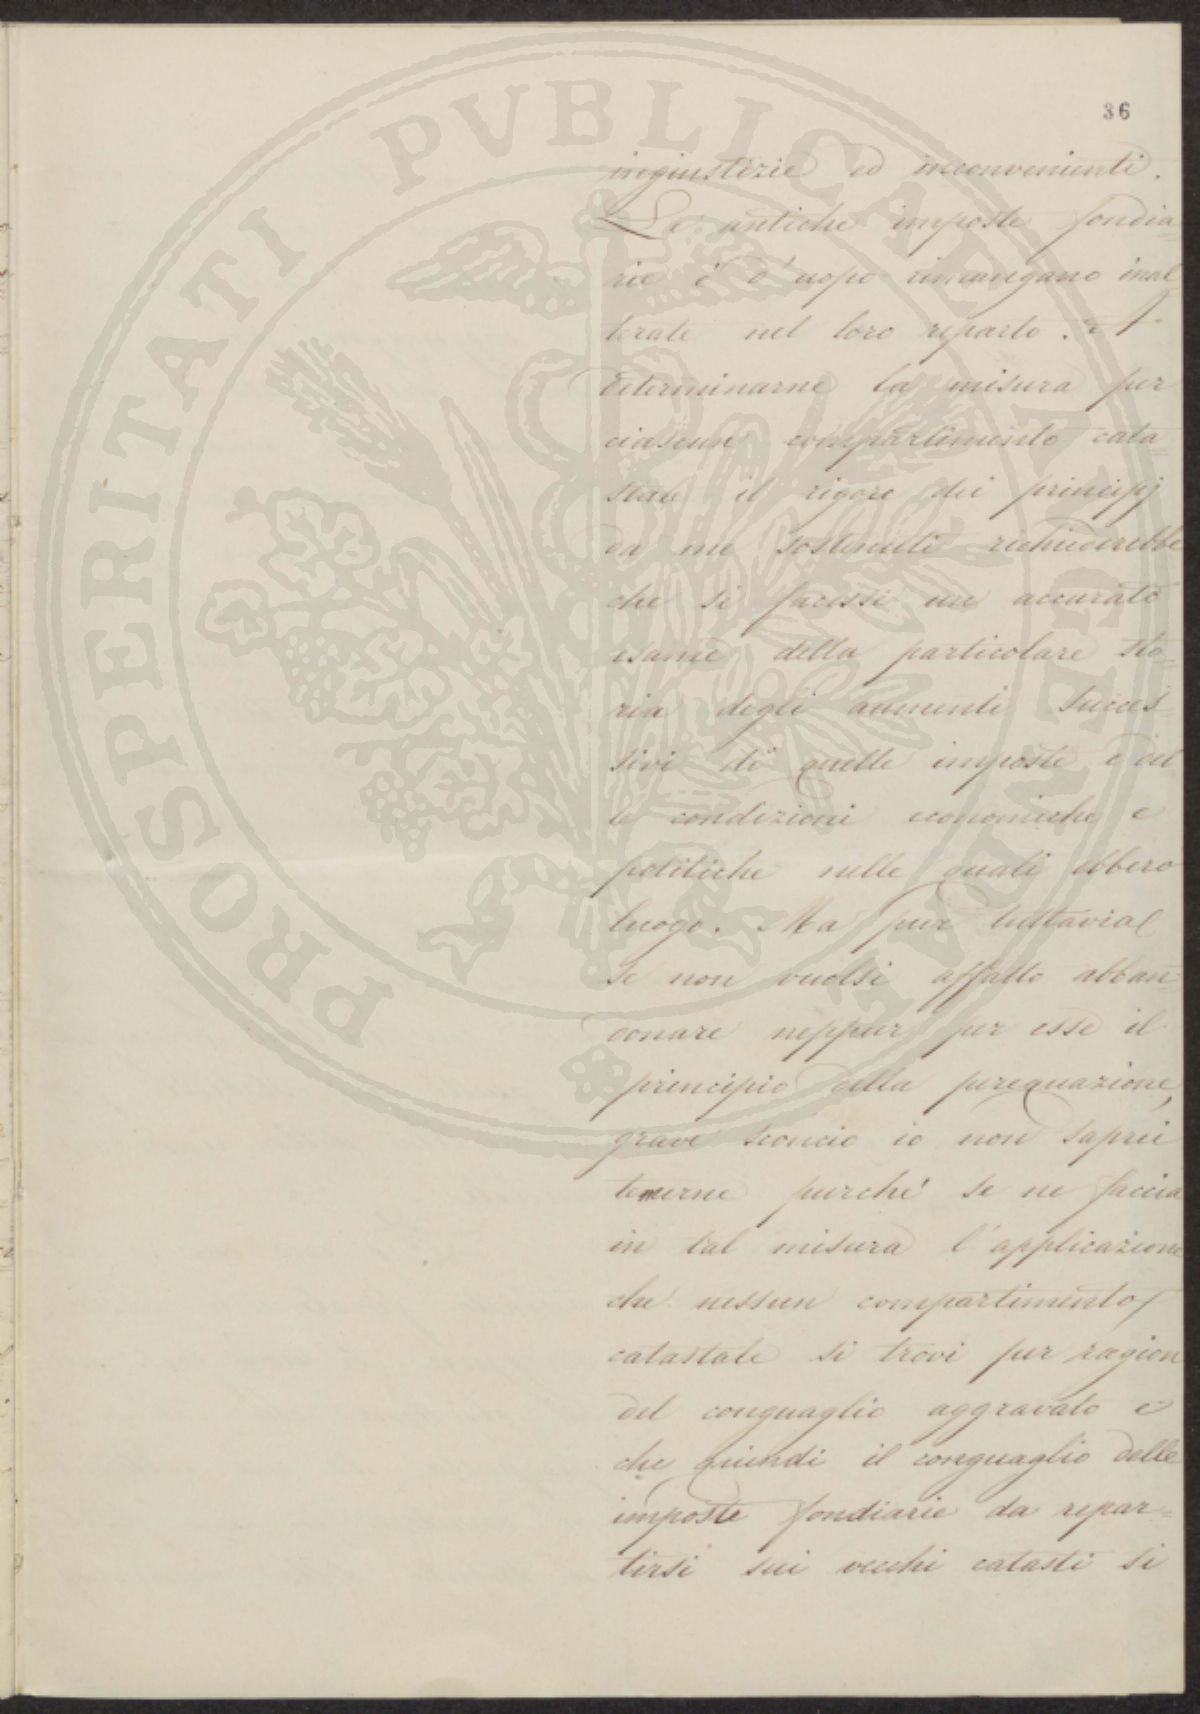 36
ingiustizie ed inconvenienti.
Le antiche imposte fondia-
rie è d'uopo rimangano inal
terate nel loro reparto. A
determinarne la misura per
ciascun compartimento cata-
stale il rigore dei principj
da me sostenuti richiederebbe
che si facesse un accurato
esame della particolare sto-
ria degli aumenti succes-
sivi di quelle imposte e del
le condizioni economiche e
politiche nelle quali ebbero
luogo. Ma pur tuttavia
se non vuolsi affatto abban-
donare neppur per esse il
principio della perequazione,
grave sconcio io non saprei
temerne purché se ne faccia
in tal misura l'applicazione
che nessun compartimento
catastale si trovi per ragion
del conguaglio aggravato e
che quindi il conguaglio delle
imposte fondiarie da repar-
tirsi sui vecchi catasti si
PROSPERITATI PVBLICAE AVGENDAE